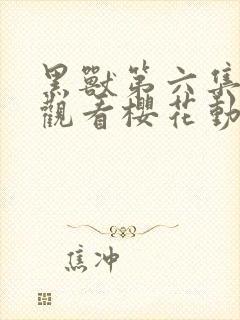 黑獸第六集
觀看櫻花動
焦冲